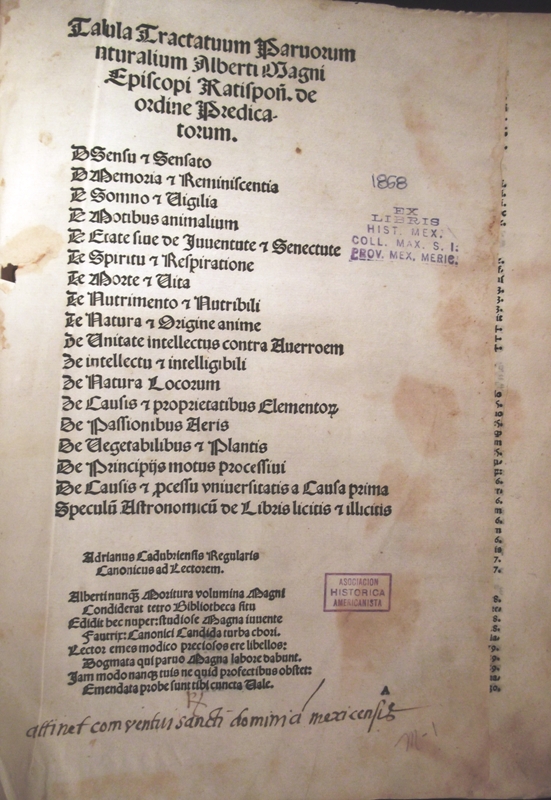 Tabula Tractatuum Paruorum
nturalium Alberti Magni
Episcopi Ratispoñ. de
ordine Predica-
torum.
D Sensu ⁊ Sensato
D Memoria ⁊ Reminiscentia
D Somno ⁊ Uigilia
D Motibus animalium
D Etate siue de Juuentute ⁊ Senectute
De Spiritu ⁊ Respiratione
De Morte ⁊ Uita
De Nutrimento ⁊ Nutribili
De Natura ⁊ Origine anime
De Unitate intellectus contra Auerroem
De intellectu ⁊ intelligibili
De Natura Locorum
De Causis ⁊ proprietatibus Elementoꝝ
De Passionibus Aeris
De Uegetabilibus ⁊ Plantis
De Principijs motus processiui
De Causis ⁊ ꝓcessu vniuersitatis a Causa prima
Speculū Astronomicū de Libris licitis ⁊ illicitis
1868
EX
LIBRIS
HIST. MEX.
COLL. MAX. S. I.
PROV. MEX. MERIC.
Adrianus Cadubriensis Regularis
Canonicus ad Lectorem.
Alberti nunq̃ Moritura volumina Magni
Condiderat tetro Bibliotheca situ
Edidit hec nuper: studiose Magna iuuente
Fautrix: Canonici Candida turba chori.
Lector emes modico preciosos ere libellos:
Dogmata qui paruo Magna labore dabunt.
Jam modo nanq̃ tuis ne quid profectibus obstet:
Emendata probe sunt tibi cuncta Uale.
A
ASOCIACION
HISTORICA
AMERICANISTA
attinet conventui sancti dominici mexicensis
M-1